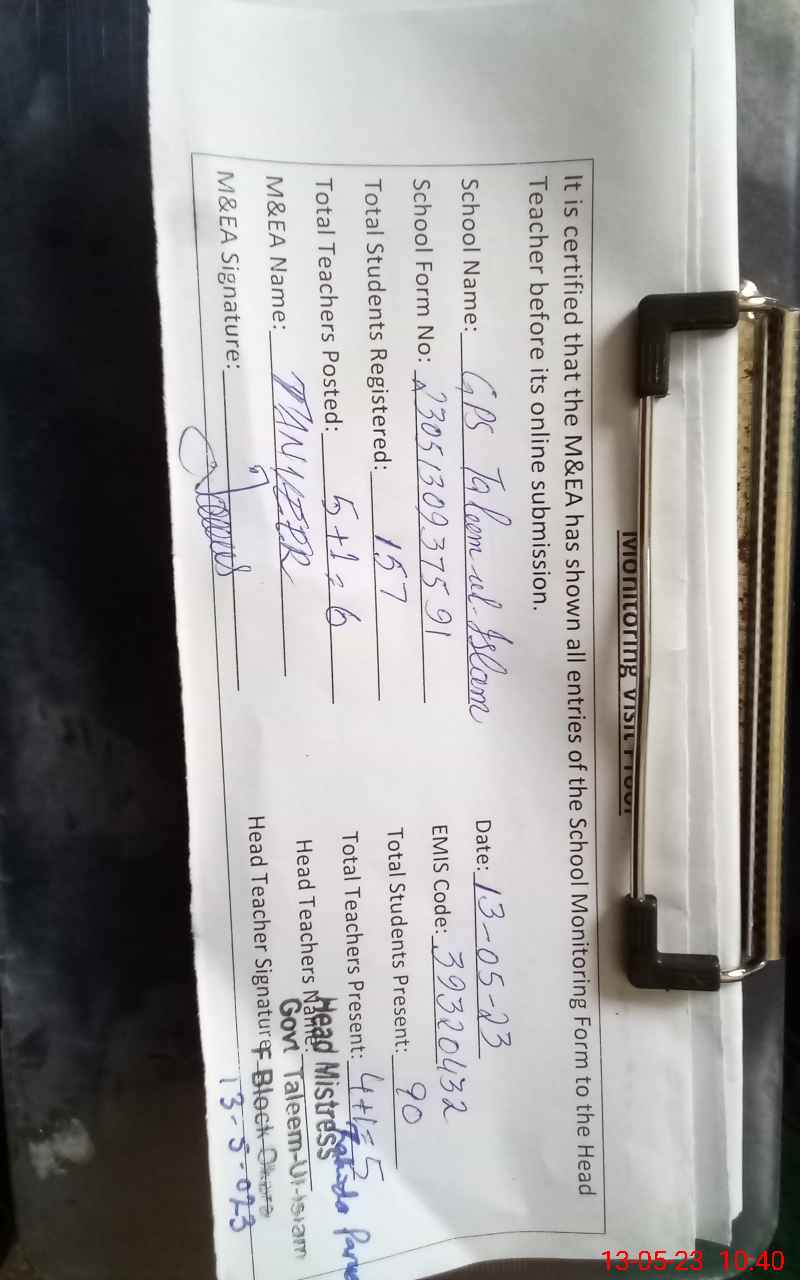 Monitoring Visit Proof
It is certified that the M&EA has shown all entries of the School Monitoring Form to the Head
Teacher before its online submission.
School Name: GPS Taleem-ul-Islam Date: 13-05-23
School Form No: 2305130937591 EMIS Code: 39320432
Total Students Registered: 157 Total Students Present: 90
Total Teachers Posted: 5+1=6 Total Teachers Present: 4+1=5
M&EA Name: TANVEER Head Teachers Name:
Head Mistress
Govt Taleem-Ul-Islam
M&EA Signature: Head Teacher Signature
F Block Okara
13-5-023
13-05-23 10:40